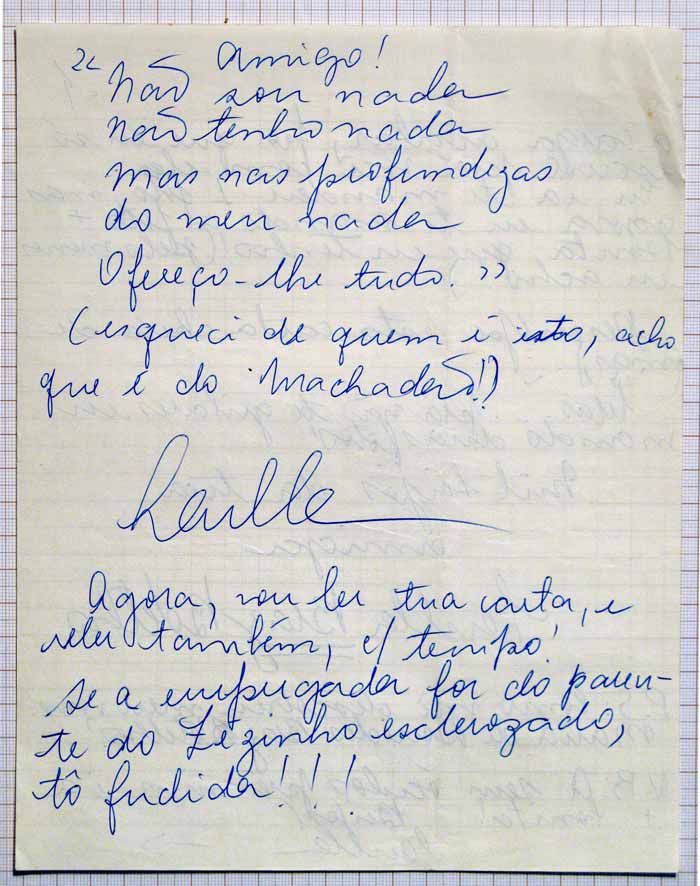 Amigo!
"Não sou nada
não tenho nada
mas nas profundezas
do meu nada
Ofereço-lhe tudo."
(esqueci de quem é isto, acho
que é do Machadão!)
Agora, vou ler tua carta, e
reler também, c/ tempo!
Se a empugada for do paren-
te do Zezinho esclerozado,
tô fudida!!!